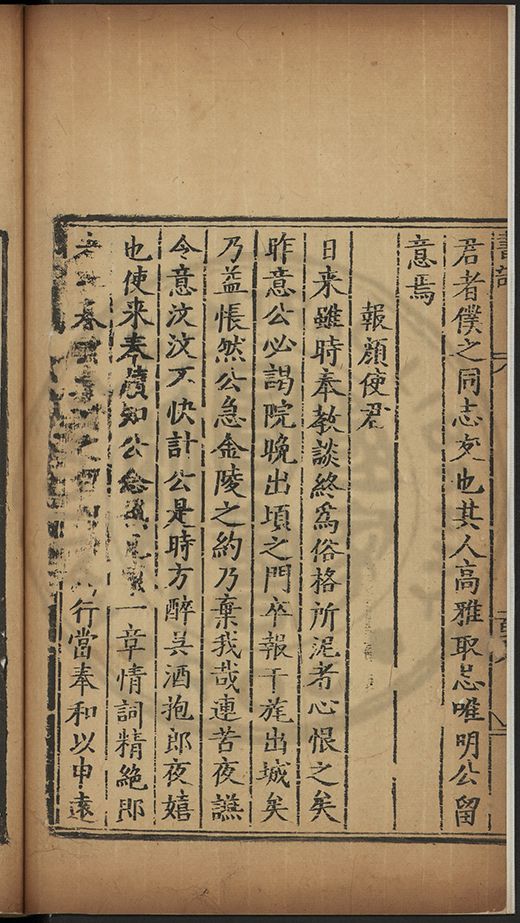 君者僕之同志友也其人高雅取忘唯明公留
意焉
報顏使君
日来雖時奉教談終爲俗格所泥者心恨之矣
昨意公必謁院晚出頃之門卒報干旄出城矣
乃益悵然公急金陵之約乃棄我哉連苦夜讌
今意汶汶不快計公是時方醉吴酒抱郎夜嬉
也使来奉牘知公念一章情詞精絶郎
行當奉和以申遠